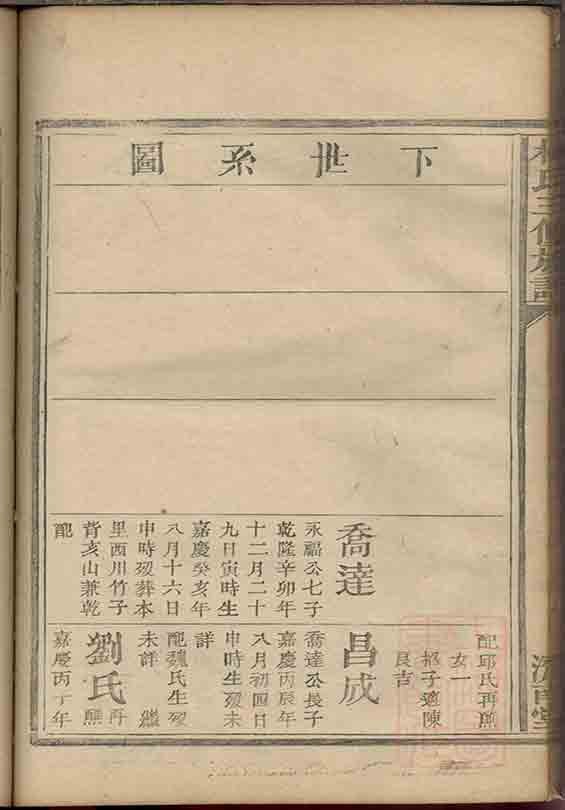 下世系圖
喬達
永福公七子
乾隆辛卯年
十二月二十
九日寅時生
嘉慶癸亥年
八月十六日
申時歿葬本
里西川竹子
背亥山兼乾
配
配邱氏再醮
女一
招子適陳
良吉
昌成
喬達公長子
嘉慶丙辰年
八月初四日
申時生歿未
詳
配魏氏生歿
未詳 繼
劉氏再醮
嘉慶丙丁年